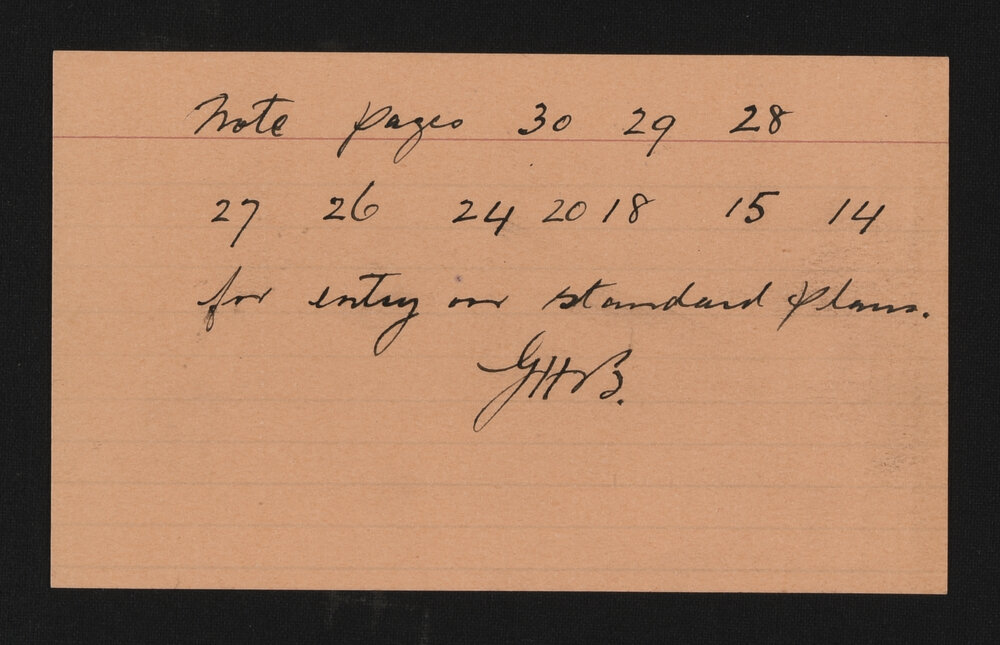 Note pages 30 29 28
27 26 24 20 18 15 14
for entry on standard plans.
GHB.